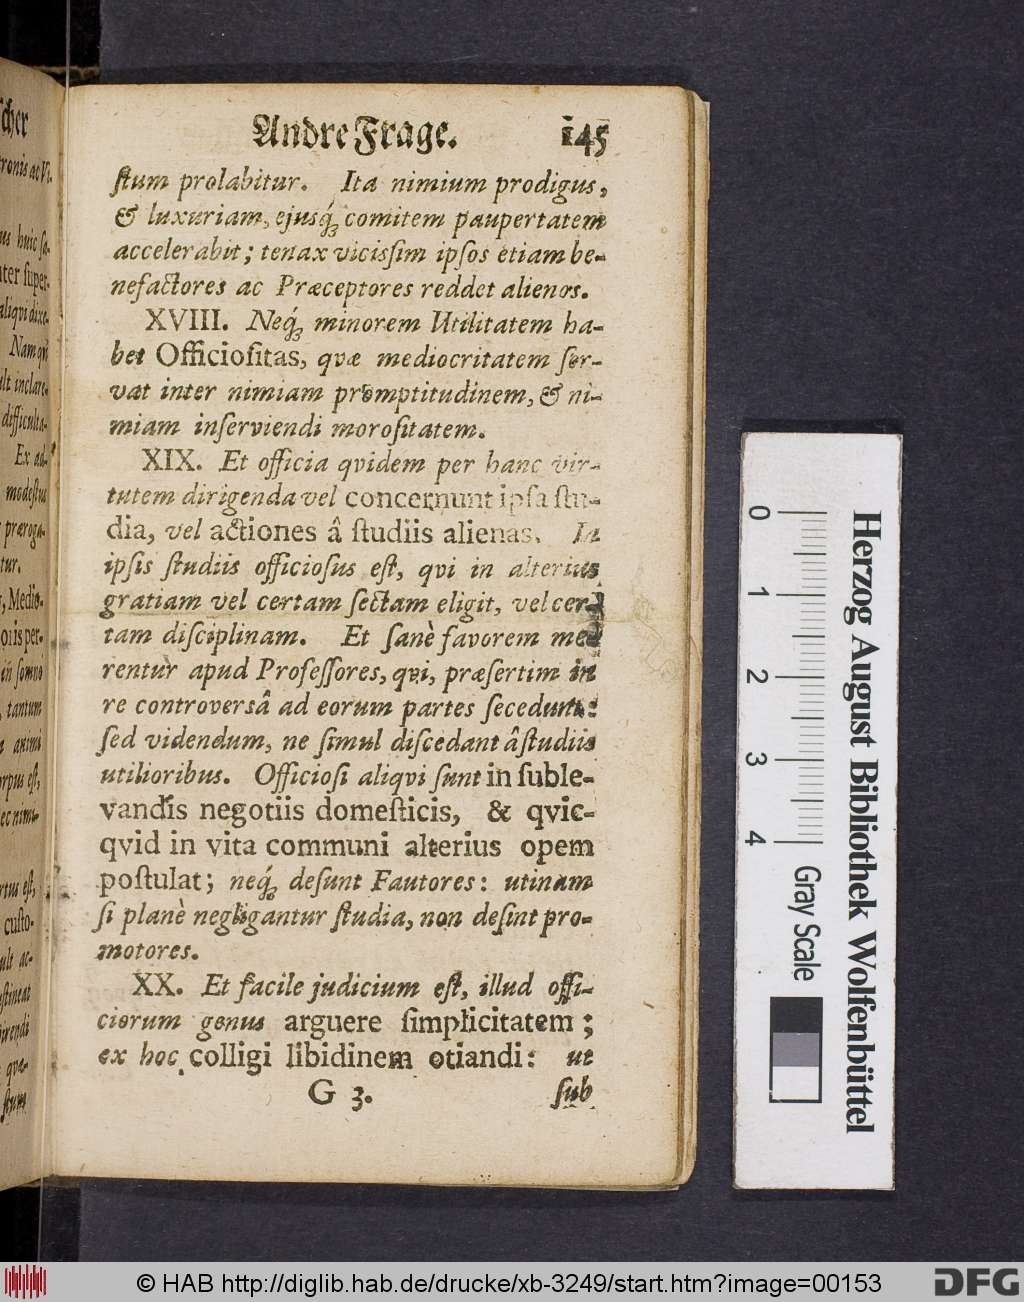 Andre Frage. 145
stum prolabitur. Ita nimium prodigus,
& luxuriam, ejusq́; comitem paupertatem
accelerabit; tenax vicissim ipsos etiam be-
nefactores ac Præceptores reddet alienos.
XVIII. Neq́; minorem Utilitatem ha-
bet Officiositas, qvæ mediocritatem ser-
vat inter nimiam promptitudinem, & ni-
miam inserviendi morositatem.
XIX. Et officia qvidem per hanc vir-
tutem dirigenda vel concernunt ipsa stu-
dia, vel actiones â studiis alienas. In
ipsis studiis officiosus est, qvi in alterius
gratiam vel certam sectam eligit, vel cer-
tam disciplinam. Et sanè favorem me-
rentur apud Professores, qvi, præsertim in
re controversâ ad eorum partes secedunt:
sed videndum, ne simul discedant â studiis
utilioribus. Officiosi aliqvi sunt in suble-
vandis negotiis domesticis, & qvic-
qvid in vita communi alterius opem
postulat; neq́; desunt Fautores: utinam
si planè negligantur studia, non desint pro-
motores.
XX. Et facile judicium est, illud offi-
ciorum genus arguere simplicitatem;
ex hoc colligi libidinem otiandi: ut
G 3. sub
scher
tronis ac Vi-
us huic sa-
ter super-
aliqvi dixe-
Nam qvi
ult inclare-
difficulta-
Ex ad-
modestus
præroga-
tur.
Medio-
oris per-
in somno
tantum
animi
orpus est,
ec nimi-
rtus est,
custo-
ult ac-
stineat
qvæ-
stum
0 1 2 3 4
Gray Scale
Herzog August Bibliothek Wolfenbüttel
© HAB http://diglib.hab.de/drucke/xb-3249/start.htm?image=00153
DFG